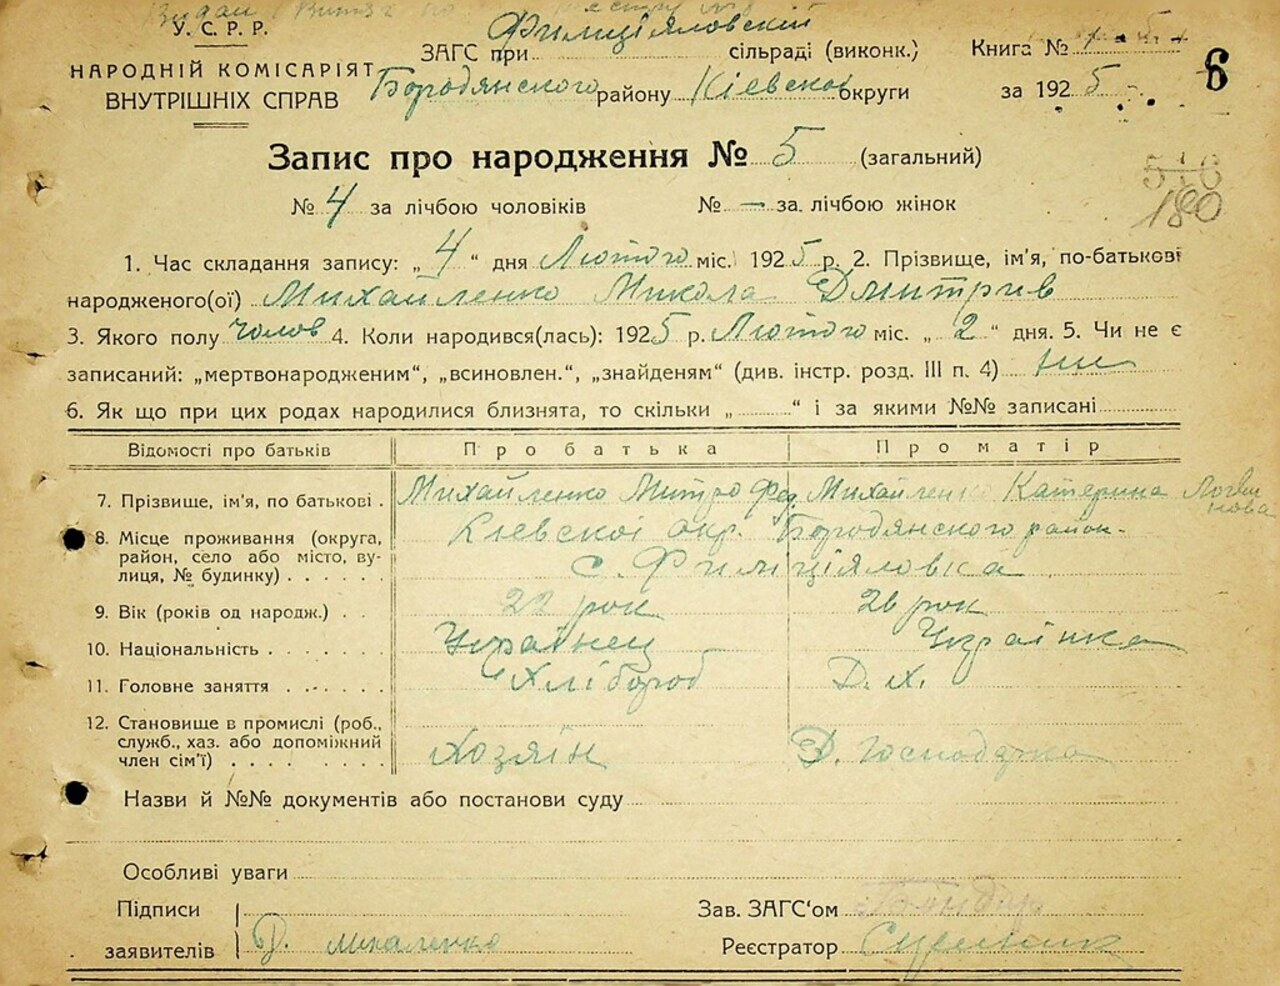 У. С. Р. Р.
НАРОДНІЙ КОМІСАРІЯТ
ВНУТРІШНІХ СПРАВ
ЗАГС при Филиціяловскій сільраді (виконк.)
Бородянского району Кіевскоі округи
Книга №
за 1925
6
Запис про народження № 5 (загальний)
№ 4 за лічбою чоловіків № — за лічбою жінок
180
1. Час складання запису: „4“ дня Лютого міс. 1925 р. 2. Прізвище, ім'я, по-батькові
народженого(ої) Михайленко Микола Дмитрів
3. Якого полу чолов 4. Коли народився(лась): 1925 р. Лютого міс. „2“ дня. 5. Чи не є
записаний: „мертвонародженим“, „всиновлен.“, „знайденям“ (див. інстр. розд. III п. 4) ни
6. Як що при цих родах народилися близнята, то скільки „ “ і за якими №№ записані
Відомості про батьків Про батька Про матір
7. Прізвище, ім'я, по батькові . Михайленко Митро Фед. Михайленко Катерина Логвинова
8. Місце проживання (округа, район, село або місто, вулиця, № будинку) . . . . . . Кіевскоі окр. Бородянского район.
с. Филиціяловка
9. Вік (років од народж.) . . 22 рок 26 рок
10. Національність . . . . . . . Українец Українка
11. Головне заняття . . . . . . Хлібороб Д. х.
12. Становище в промислі (роб., служб., хаз. або допоміжний член сім'ї) . . . . . . . . . Хозяін Д. Господарка
Назви й №№ документів або постанови суду
Особливі уваги
Підписи
заявителів Д. Михаленко
Зав. ЗАГС'ом
Реєстратор